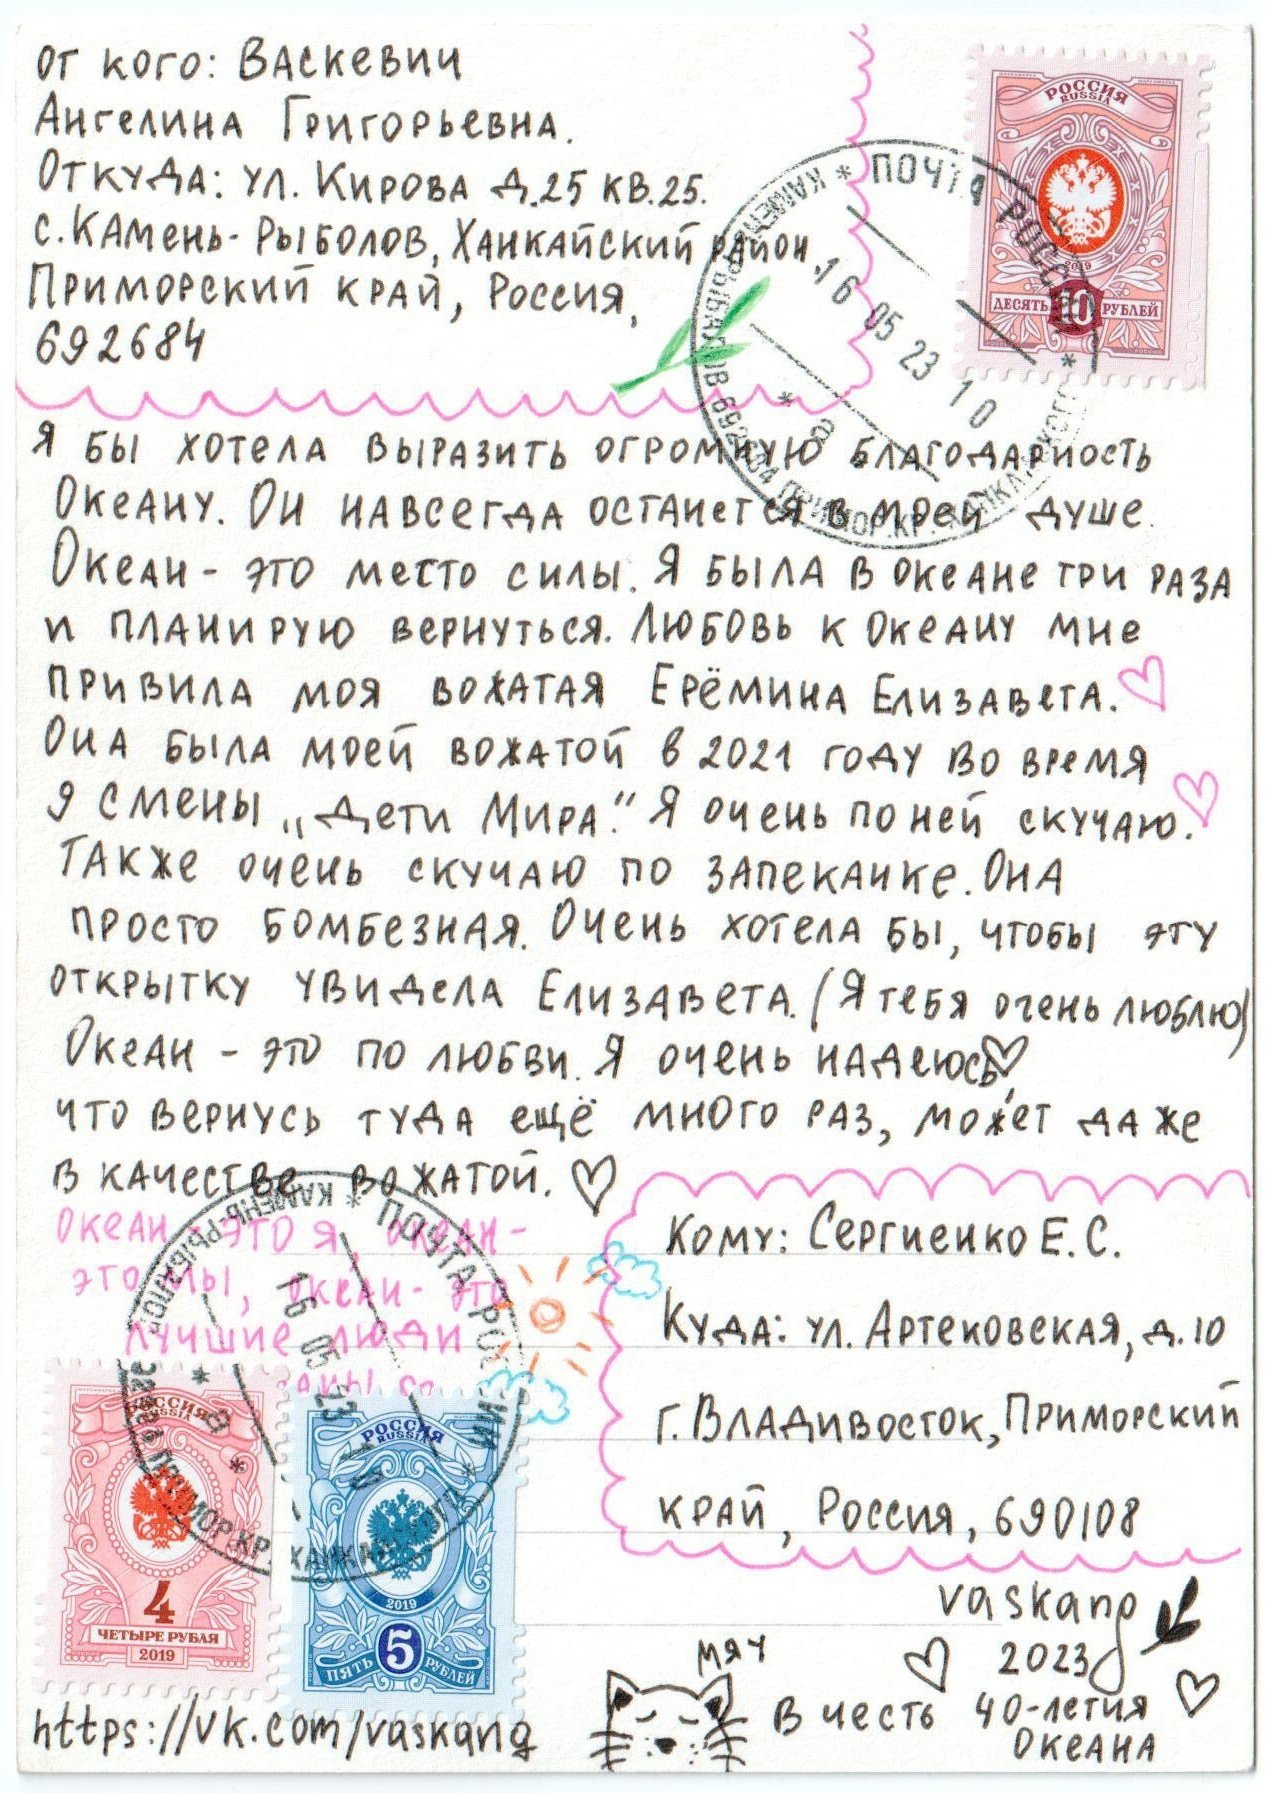 от кого: Васкевич
Ангелина Григорьевна.
Откуда: ул. Кирова д.25 кв.25.
с.Камень-Рыболов, Ханкайский район,
Приморский край, Россия,
692684
РОССИЯ
RUSSIA
2019
ДЕСЯТЬ 10 РУБЛЕЙ
ПОЧТА РОССИИ
16 05 23 10
Я бы хотела выразить огромную благодарность
Океану. Он навсегда останется в моей душе.
Океан - это место силы. Я была в океане три раза
и планирую вернуться. Любовь к океану мне
привила моя вожатая Ерёмина Елизавета.
Она была моей вожатой в 2021 году во время
я смены „Дети Мира." Я очень по ней скучаю.
Также очень скучаю по запеканке. Она
просто бомбезная. Очень хотела бы, чтобы эту
открытку увидела Елизавета. (Я тебя очень люблю)
Океан - это по любви. Я очень надеюсь,
что вернусь туда ещё много раз, может даже
в качестве вожатой.
Океан - это я, океан -
это мы, океан - это
лучшие люди
ПОЧТА РОССИИ
16 05 23 10
Кому: Сергиенко Е.С.
Куда: ул. Артековская, д.10
г.Владивосток, Приморский
край, Россия, 690108
РОССИЯ
RUSSIA
4
ЧЕТЫРЕ РУБЛЯ
2019
РОССИЯ
RUSSIA
2019
ПЯТЬ 5 РУБЛЕЙ
vaskang
2023
мяу
В честь 40-летия
Океана
https://vk.com/vaskang